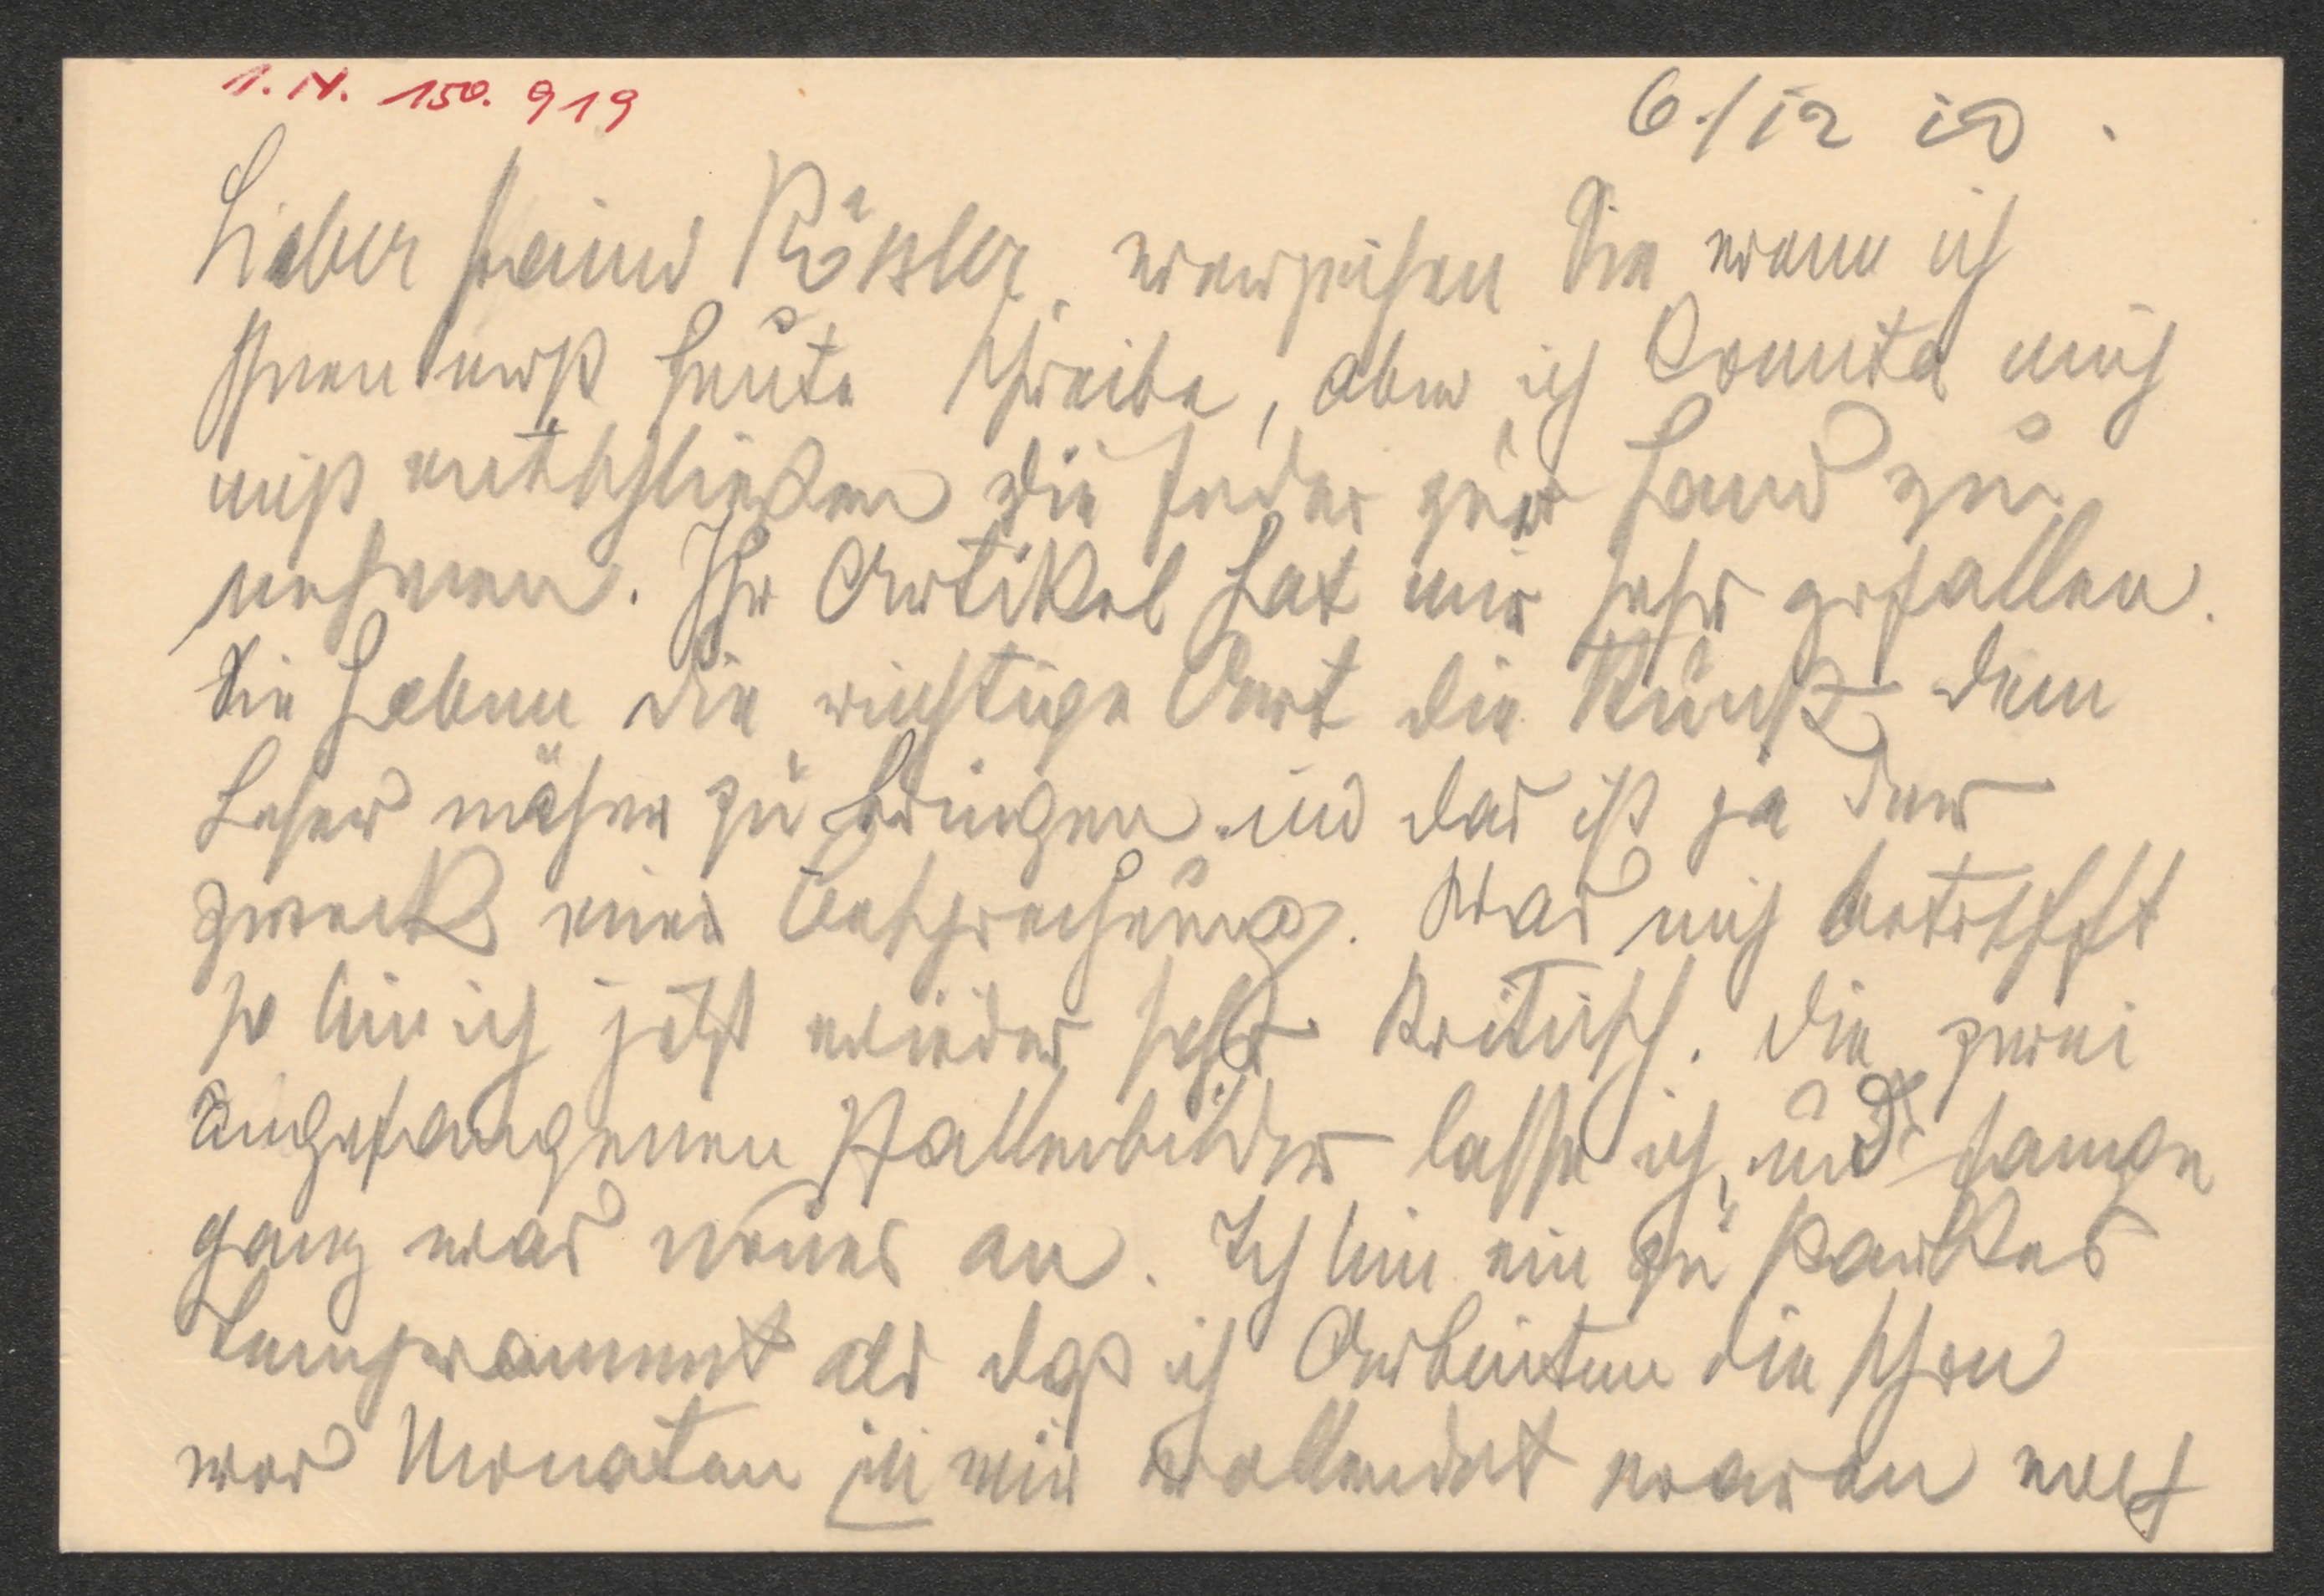 I.N. 150.919
6./12 10.
Lieber freund Rössler, verzeihen Sie wenn ich
Ihnen erst heute schreibe, aber ich konnte mich
nicht entschließen die feder zur Hand zu
nehmen. Ihr Artikel hat mir sehr gefallen.
Sie haben die richtige Art die Kunst dem
Leser näher zu bringen und das ist ja der
Zweck einer Besprechung. Was mich betrifft
so bin ich jetzt wieder sehr kritisch. Die zwei
angefangenen Hallerbilder lasse ich, und fange
ganz was neues an. Ich bin ein zu starkes
Temperament als daß ich Arbeiten die schon
vor Monaten in mir vollendet waren noch